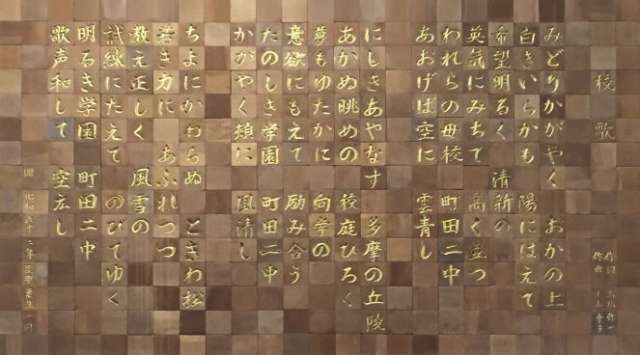 校歌
作詞
作曲
みどりかがやく おかの上
白きいらかも 陽にはえて
希望明るく 清新の
英気にみちて 高く立つ
われらの母校 町田二中
あおげば空に 雲青し
にしきあやなす 多摩の丘陵
あかぬ眺めの 校庭ひろく
夢もゆたかに 向学の
意欲にもえて 励み合う
たのしき学園 町田二中
かがやく頬に 風清し
ちよにかわらぬ ときわ松
若き力に あふれつつ
教え正しく 風雪の
試練にたえて のびてゆく
明るき学園 町田二中
歌声和して 空広し